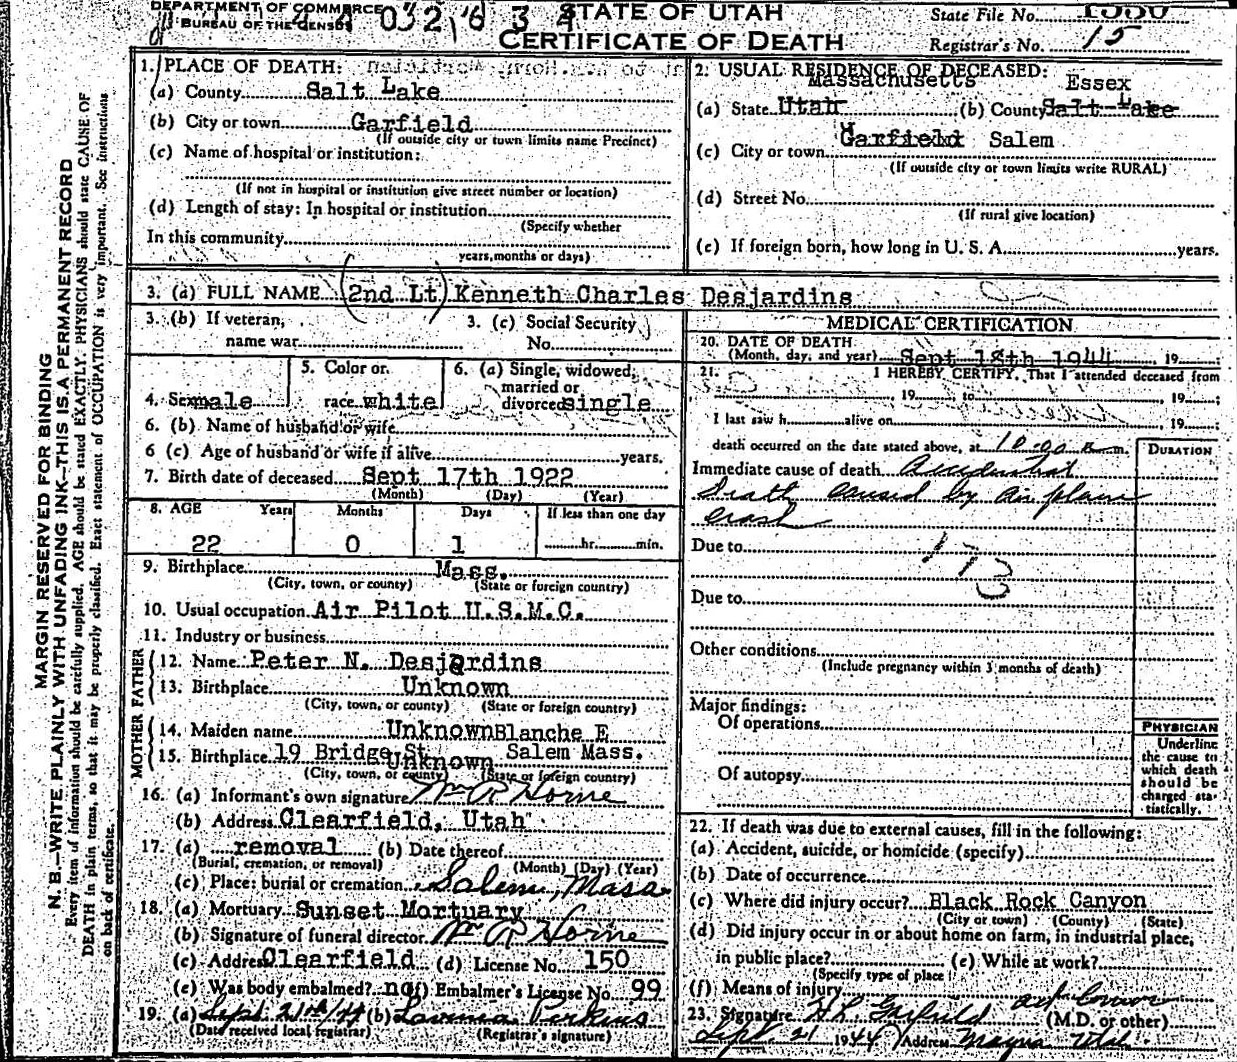 DEPARTMENT OF COMMERCE
BUREAU OF THE CENSUS
STATE OF UTAH
CERTIFICATE OF DEATH
State File No.
Registrar's No. 15
MARGIN RESERVED FOR BINDING
N. B.—WRITE PLAINLY WITH UNFADING INK—THIS IS A PERMANENT RECORD
Every item of information should be carefully supplied. AGE should be stated EXACTLY. PHYSICIANS should state CAUSE OF
DEATH in plain terms, so that it may be properly classified. Exact statement of OCCUPATION is very important. See instructions
on back of certificate.
1. PLACE OF DEATH:
(a) County Salt Lake
(b) City or town Garfield
(If outside city or town limits name Precinct)
(c) Name of hospital or institution:
(If not in hospital or institution give street number or location)
(d) Length of stay: In hospital or institution
(Specify whether
In this community
years, months or days)
2. USUAL RESIDENCE OF DECEASED:
Massachusetts Essex
(a) State Utah (b) County Salt Lake
(c) City or town Garfield Salem
(If outside city or town limits write RURAL)
(d) Street No.
(If rural give location)
(e) If foreign born, how long in U. S. A. years.
3. (a) FULL NAME (2nd Lt) Kenneth Charles Desjardins
3. (b) If veteran, name war
3. (c) Social Security No.
4. Sex male
5. Color or race white
6. (a) Single, widowed, married or divorced single
6. (b) Name of husband or wife
6 (c) Age of husband or wife if alive years.
7. Birth date of deceased Sept 17th 1922
(Month) (Day) (Year)
8. AGE Years Months Days If less than one day
22 0 1 hr. min.
9. Birthplace Mass.
(City, town, or county) (State or foreign country)
10. Usual occupation Air Pilot U.S.M.C.
11. Industry or business
FATHER
12. Name Peter N. Desjardins
13. Birthplace Unknown
(City, town, or county) (State or foreign country)
MOTHER
14. Maiden name Unknown Blanche E
15. Birthplace 19 Bridge St Unknown Salem Mass.
(City, town, or county) (State or foreign country)
16. (a) Informant's own signature Wm R Horne
(b) Address Clearfield, Utah
17. (a) removal (b) Date thereof
(Burial, cremation, or removal) (Month) (Day) (Year)
(c) Place: burial or cremation Salem, Mass
18. (a) Mortuary Sunset Mortuary
(b) Signature of funeral director Wm R Horne
(c) Address Clearfield (d) License No. 150
(e) Was body embalmed? no (f) Embalmer's License No. 99
19. (a) Sept 21st/44 (b) Lavinia Perkins
(Date received local registrar) (Registrar's signature)
MEDICAL CERTIFICATION
20. DATE OF DEATH
(Month, day, and year) Sept 18th 1944, 19
21. I HEREBY CERTIFY, That I attended deceased from
, 19 to , 19 ;
I last saw h alive on , 19 ;
death occurred on the date stated above, at 10:00 a m.
DURATION
Immediate cause of death Accidental
death caused by air plane
crash
Due to 173
Due to
Other conditions
(Include pregnancy within 3 months of death)
Major findings:
Of operations
Of autopsy
PHYSICIAN
Underline
the cause to
which death
should be
charged sta-
tistically.
22. If death was due to external causes, fill in the following:
(a) Accident, suicide, or homicide (specify)
(b) Date of occurrence
(c) Where did injury occur? Black Rock Canyon
(City or town) (County) (State)
(d) Did injury occur in or about home on farm, in industrial place,
in public place? (e) While at work?
(Specify type of place)
(f) Means of injury
23. Signature H L Garfield
(M.D. or other)
Sept. 21 1944 Address Magna Utah